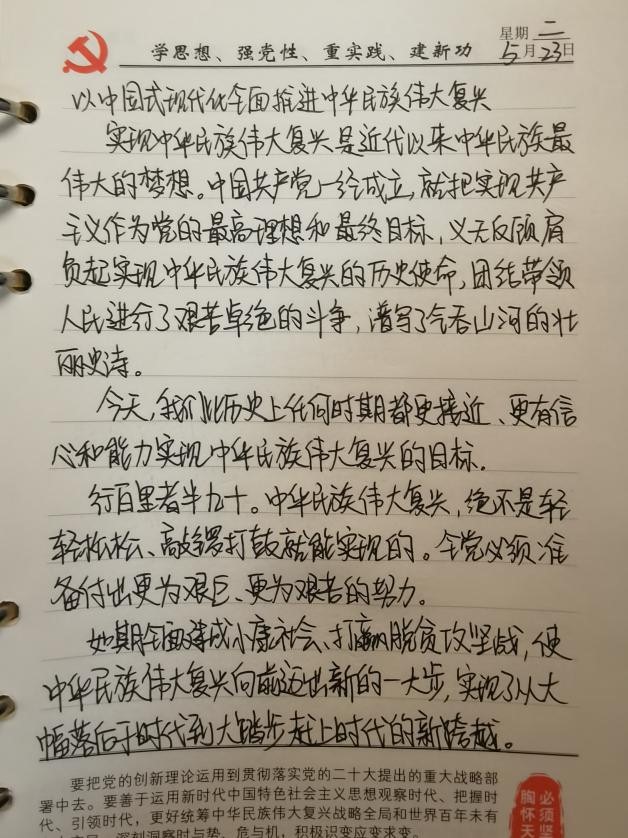 学思想、强党性、重实践、建新功
星期二
5月23日
以中国式现代化全面推进中华民族伟大复兴
实现中华民族伟大复兴是近代以来中华民族最
伟大的梦想。中国共产党一经成立,就把实现共产
主义作为党的最高理想和最终目标,义无反顾肩
负起实现中华民族伟大复兴的历史使命,团结带领
人民进行了艰苦卓绝的斗争,谱写了气吞山河的壮
丽史诗。
今天,我们比历史上任何时期都更接近、更有信
心和能力实现中华民族伟大复兴的目标。
行百里者半九十。中华民族伟大复兴,绝不是轻
轻松松、敲锣打鼓就能实现的。全党必须准
备付出更为艰巨、更为艰苦的努力。
如期全面建成小康社会、打赢脱贫攻坚战,使
中华民族伟大复兴向前迈出新的一大步,实现了从大
幅落后于时代到大踏步赶上时代的新跨越。
要把党的创新理论运用到贯彻落实党的二十大提出的重大战略部
署中去。要善于运用新时代中国特色社会主义思想观察时代、把握时
代、引领时代,更好统筹中华民族伟大复兴战略全局和世界百年未有
深刻洞察时与势、危与机,积极识变应变求变。
必须坚
胸怀天